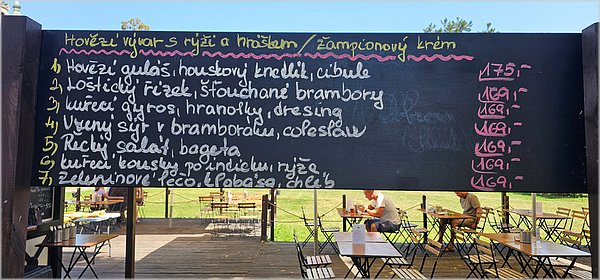 Hovězí vývar s rýží a hráškem / žampionový krém
1, Hovězí guláš, houskový knedlík, cibule 175,-
2, Loštický řízek, šťouchané brambory 169,-
3, kuřecí gyros, hranolky, dresing 169,-
4, Uzený sýr v bramboráku, coleslaw 169,-
5, Řecký salát, bageta 169,-
6, kuřecí kousky po indicku, rýže 169,-
7, Zeleninové lečo, klobása, chléb 169,-